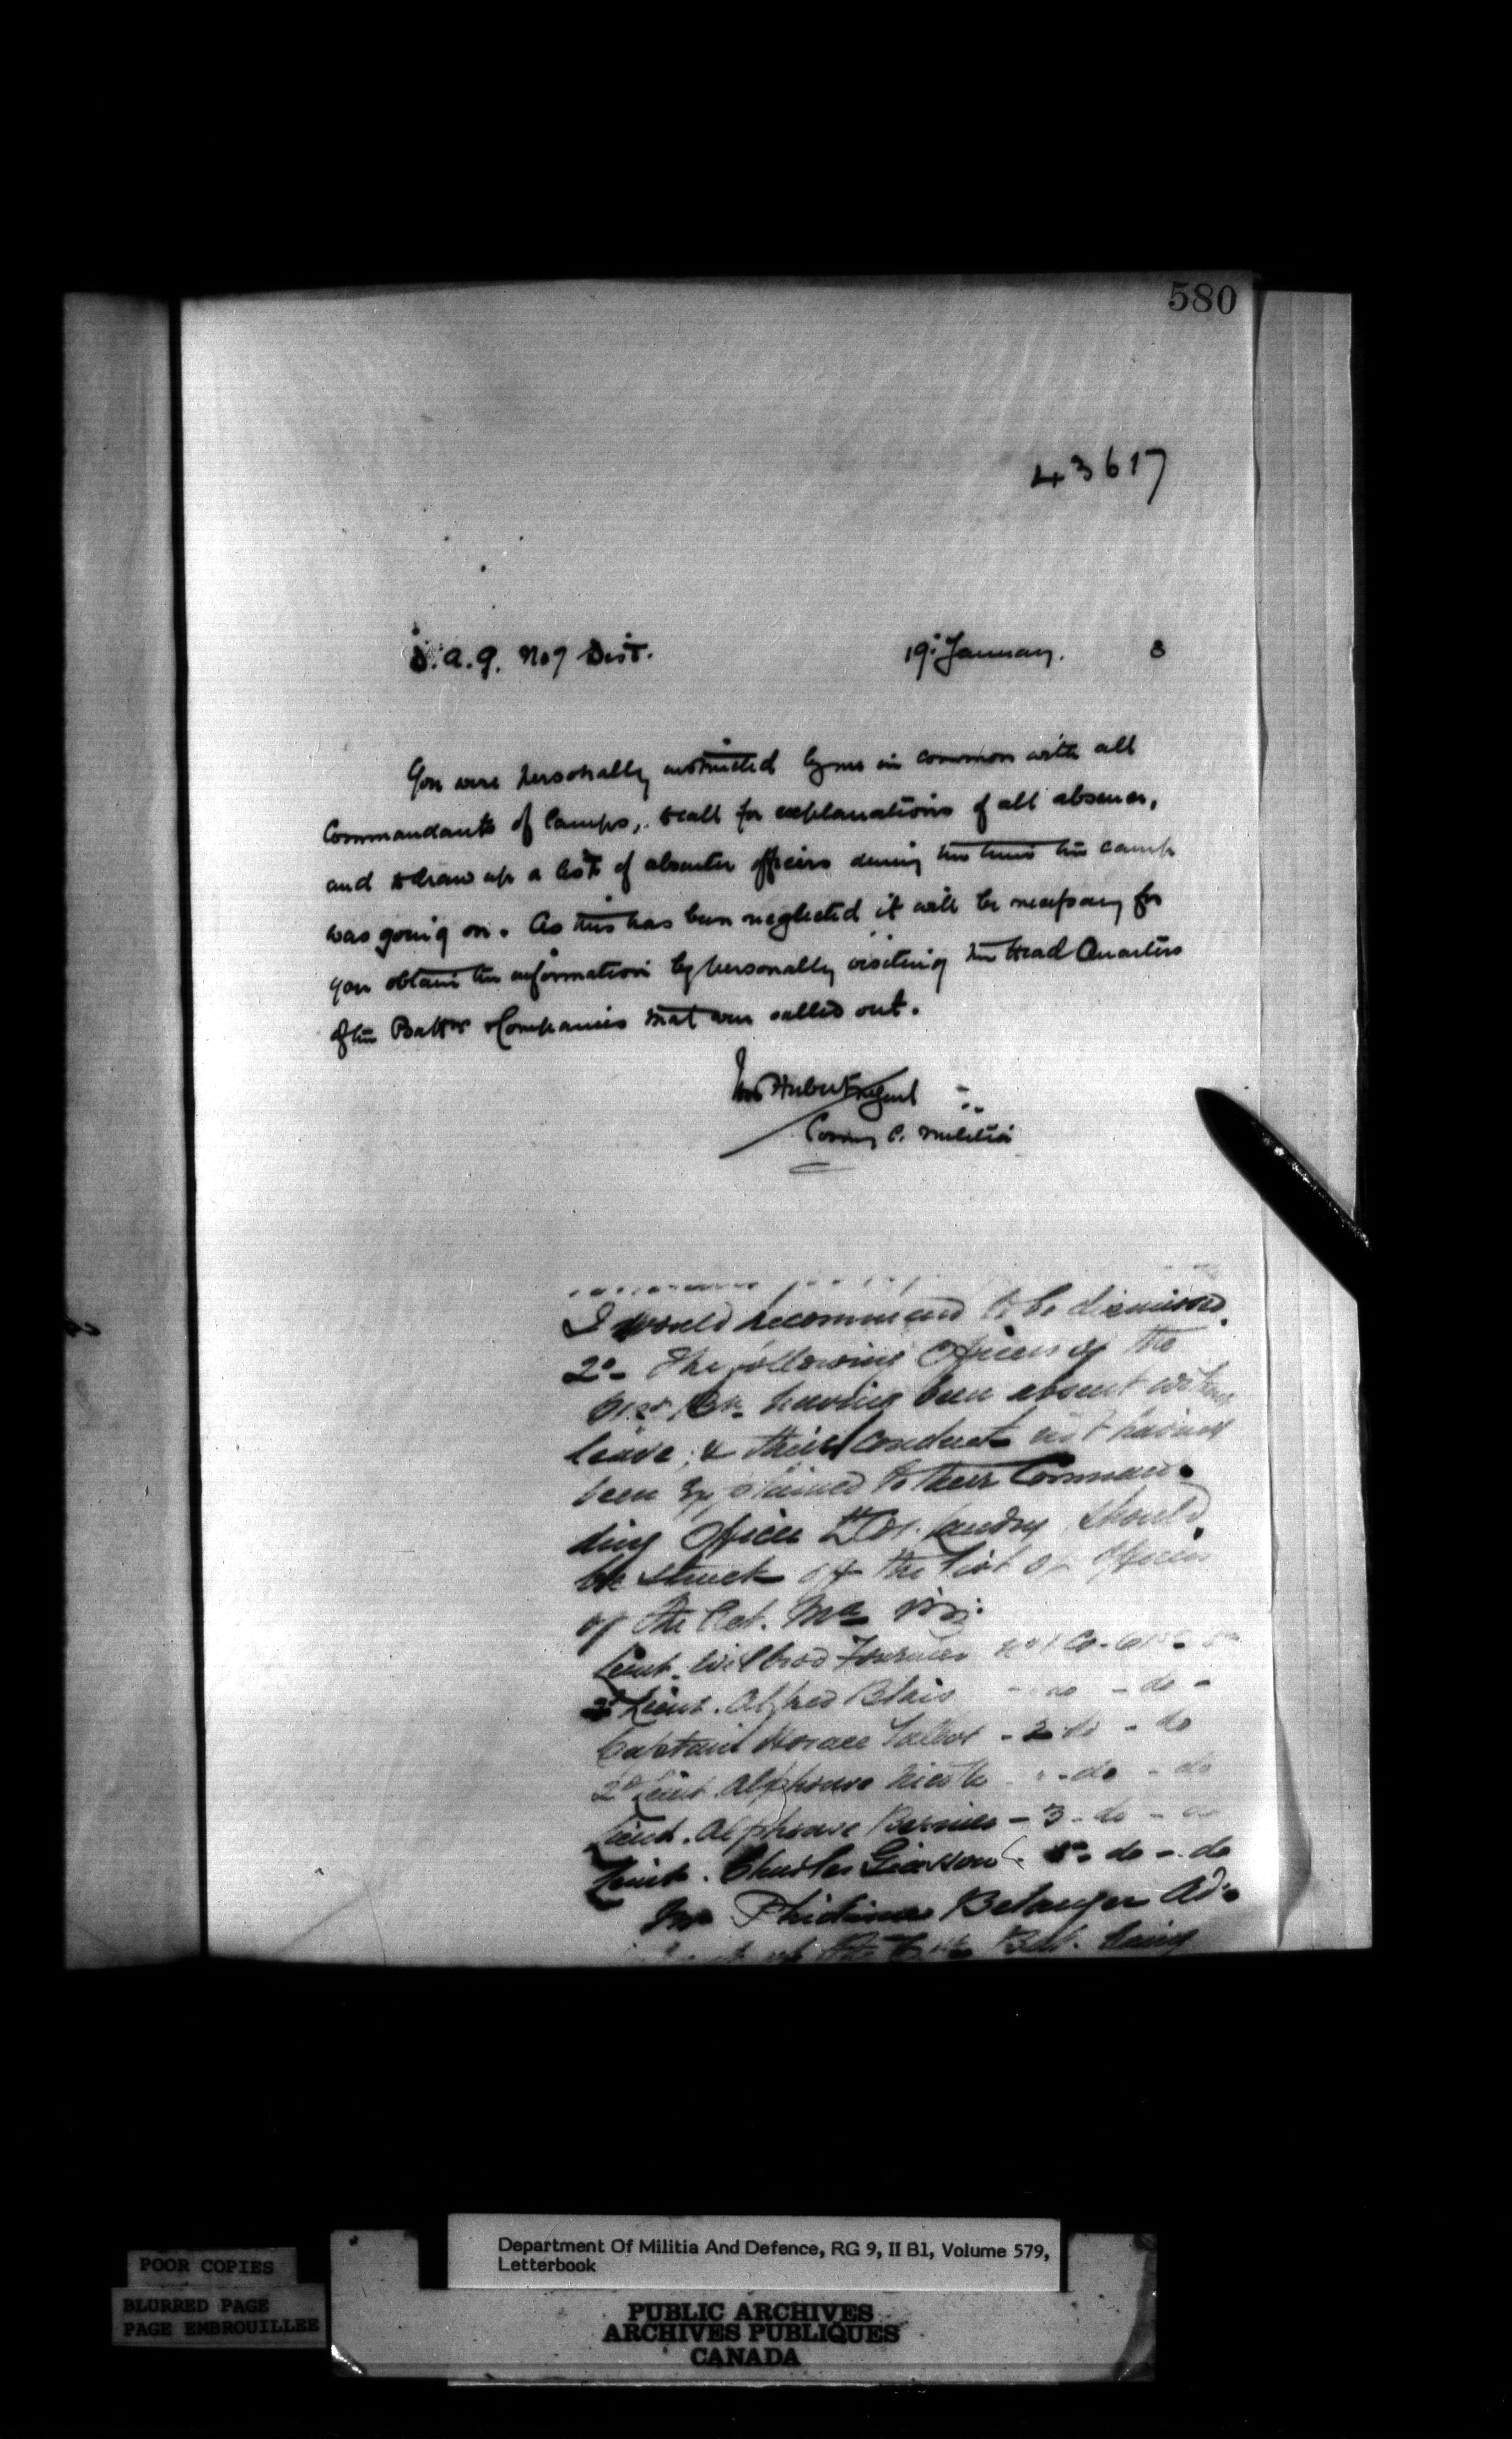 580
43617
D.A.G. No 7 Dist. 19 January. 8
You were personally instructed by me in common with all
Commandants of Camps, to call for explanations of all absences,
and to draw up a list of absentee officers during the time the camp
was going on. As this has been neglected it will be necessary for
you obtain the information by personally visiting the Head Quarters
of the Battns & Companies that were called out.
Comg C. Militia
I would recommend to be dismissed.
2o- The following Officers of the
61st Bn. having been absent without
leave, & their conduct not having
been explained to their Comman-
ding Officer Lt Col. Landry should
be struck off the list of Officers
of the Act. Ma viz:
Lieut. Wilbrod Fournier No 1 Co- 61st Bn
2d Lieut. Alfred Blais - do - do -
Captain Horace Talbot - 2 do - do
2d Lieut. Alphonse - do - do
Lieut. Alphonse Bernier - 3 - do - do
Lieut. Charles Giasson - 5 - do - do
Mr Phidime Belanger Ad-
of the 61st Bat. having
Department Of Militia And Defence, RG 9, II B1, Volume 579,
Letterbook
POOR COPIES
BLURRED PAGE
PAGE EMBROUILLEE
PUBLIC ARCHIVES
ARCHIVES PUBLIQUES
CANADA